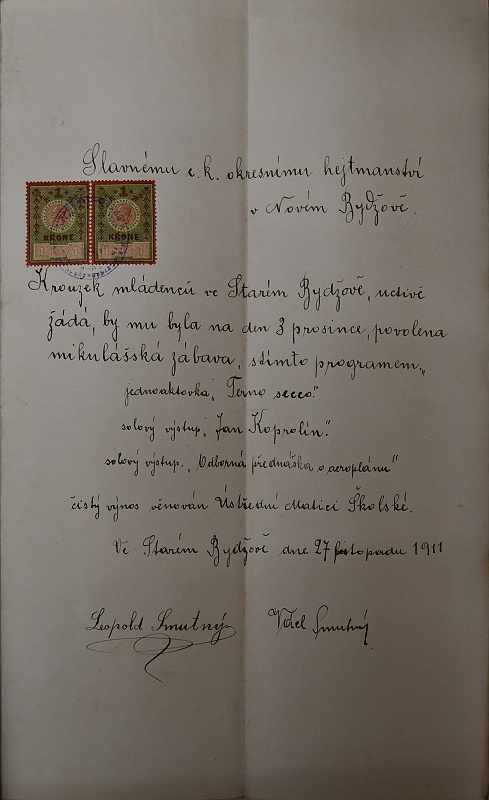 Slavnému c. k. okresnímu hejtmanství
v Novém Bydžově.
1 1
KRONE KRONE
Kroužek mládenců ve Starém Bydžově, uctivě
žádá, by mu byla na den 3 prosince, povolena
mikulášská zábava, stímto programem„
jednoaktovka„ Terno secco."
solový výstup„ Jan Koprolín."
solový výstup. „Odborná přednáška o aeroplánu"
čistý výnos věnován Ústřední Matici Školské.
Ve Starém Bydžově dne 27 listopadu 1911
Leopold Smutný Václ Smutný